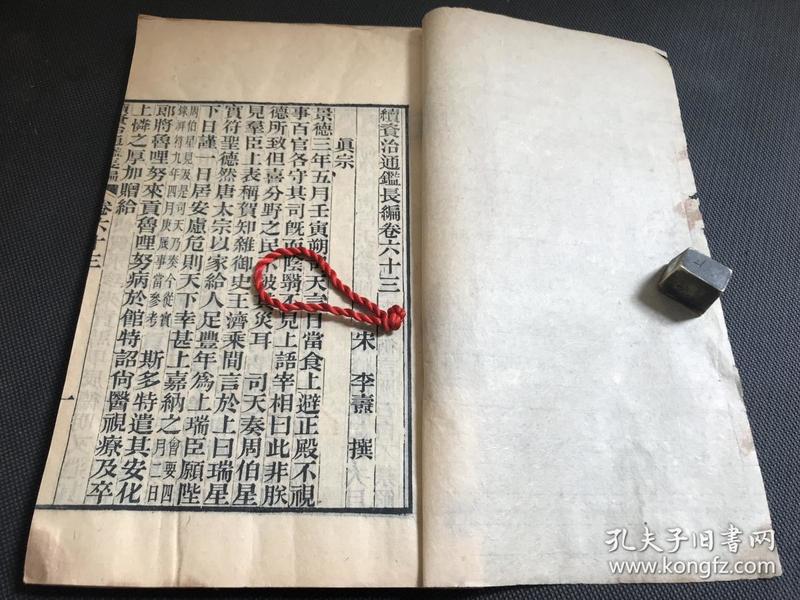 續資治通鑑長編卷六十三
宋 李燾 撰
眞宗
景德三年五月壬寅朔司天言日當食上避正殿不視
事百官各守其司旣而陰翳不見上語宰相曰此非朕
德所致但喜分野之民不被其災耳 司天奏周伯星
見羣臣上表稱賀知雜御史王濟乘間言於上曰瑞星
實符聖德然唐太宗以家給人足豐年爲上瑞臣願陛
下日謹一日居安慮危則天下幸甚上嘉納之會要四月二日
周伯星見及是司天乃奏今從實錄祥符九年四月庚辰事當參考 斯多特遣其安化
郎將魯哩努來貢魯哩努病於館特詔尙醫視療及卒
上憐之厚加贈給
續資治通鑑長編 卷六十三
一
孔夫子旧书网
www.kongfz.com